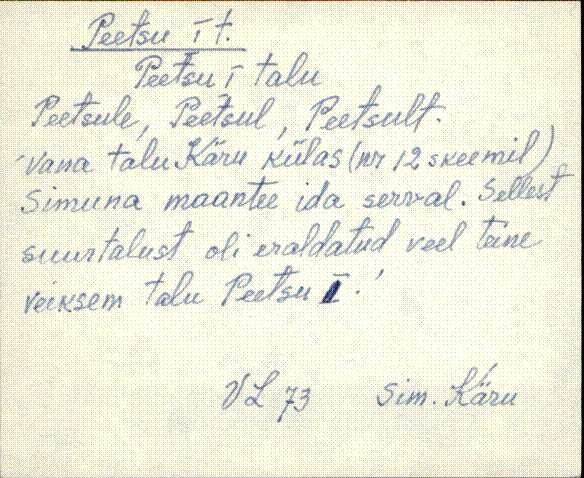 Peetsu I t.
Peetsu I talu
Peetsule, Peetsul, Peetsult.
Vana talu Käru külas (nr 12 skeemil)
Simuna maantee ida serval. Sellest
suurtalust oli eraldatud veel teine
veiksem talu Peetsu I.
VL 73 Sim. Käru